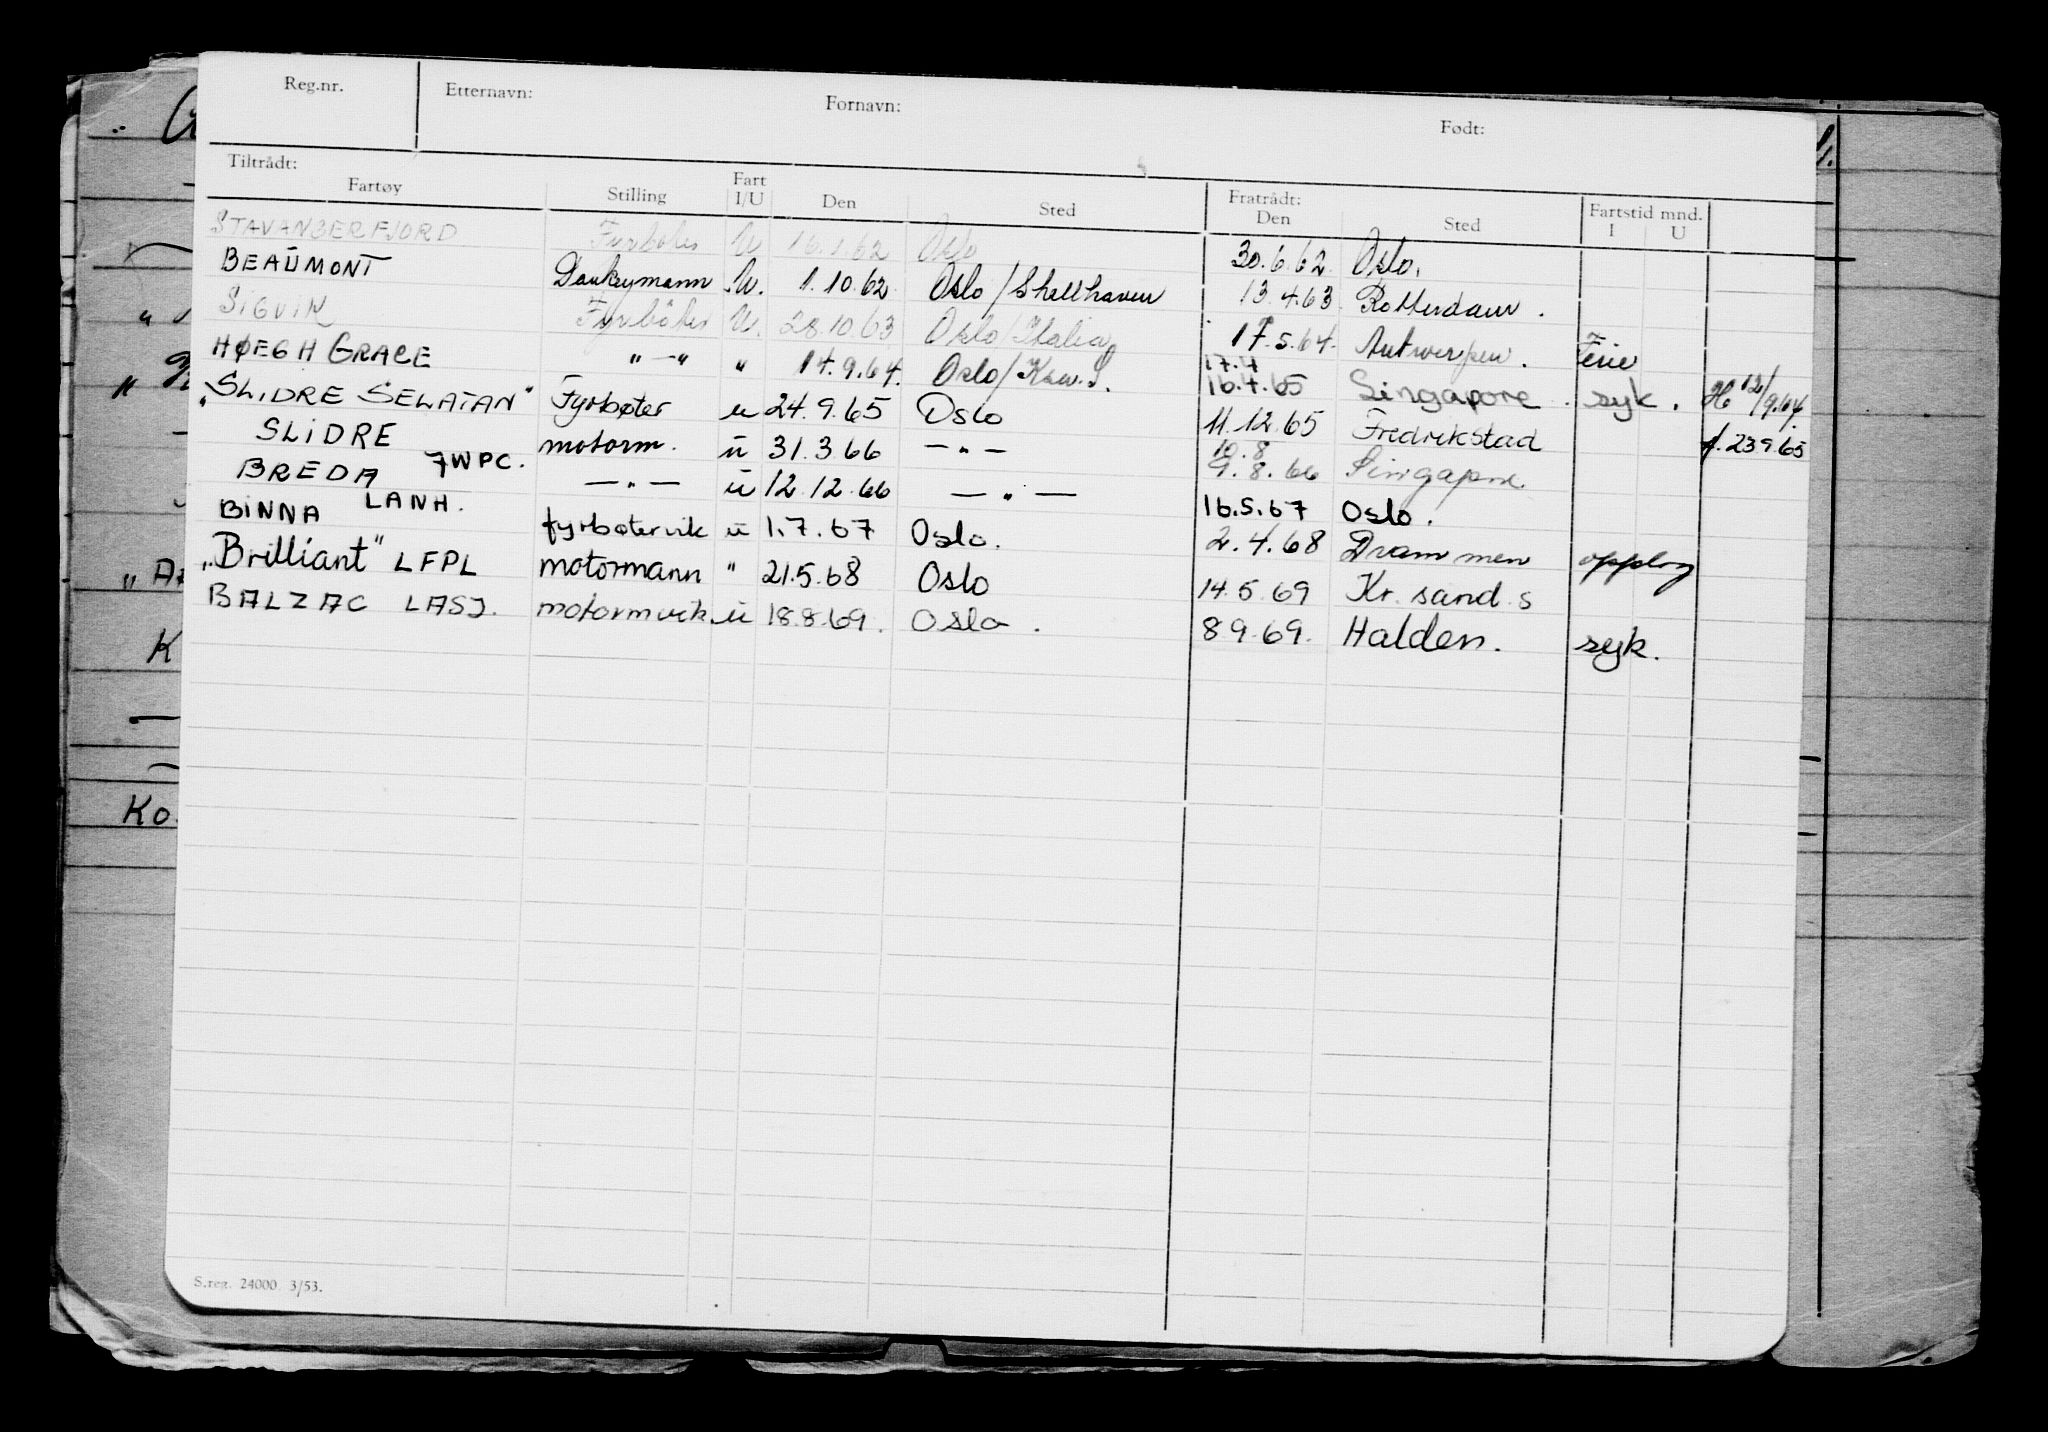 Reg.nr. Etternavn: Fornavn: Født:
Tiltrådt: Fratrådt:
Fartøy Stilling Fart I/U Den Sted Den Sted Fartstid mnd. I U
STAVANGERFJORD Fyrbøter U 16.1.62 Oslo 30.6.62. Oslo.
BEAUMONT Donkeymann U. 1.10.62 Oslo/Shellhaven 13.4.63 Rotterdam.
SIGVIN Fyrbøter U. 28.10.63 Oslo/Italia 17.5.64. Antwerpen. Ferie
HØEGH GRACE " — " " 14.9.64. Oslo/Kaw.S. 17.4 16.4.65 Singapore. syk. 12/9.64.
"SLIDRE SELATAN" Fyrbøter u 24.9.65 Oslo 11.12.65 Fredrikstad f. 23.9.65
SLIDRE JWPC. motorm. ü 31.3.66 — " — 10.8 9.8.66 Singapore
BREDA LANH. — " — ü 12.12.66 — " — 16.5.67 Oslo.
BINNA fyrbøtervik ü 1.7.67 Oslo. 2.4.68 Drammen opplag
"Brilliant" LFPL motormann " 21.5.68 Oslo 14.5.69 Kr.sand.s
BALZAC LASJ. motormvik. ü 18.8.69. Oslo. 8 9.69. Halden. syk.
K
Ko.
S.reg. 24000. 3/53.